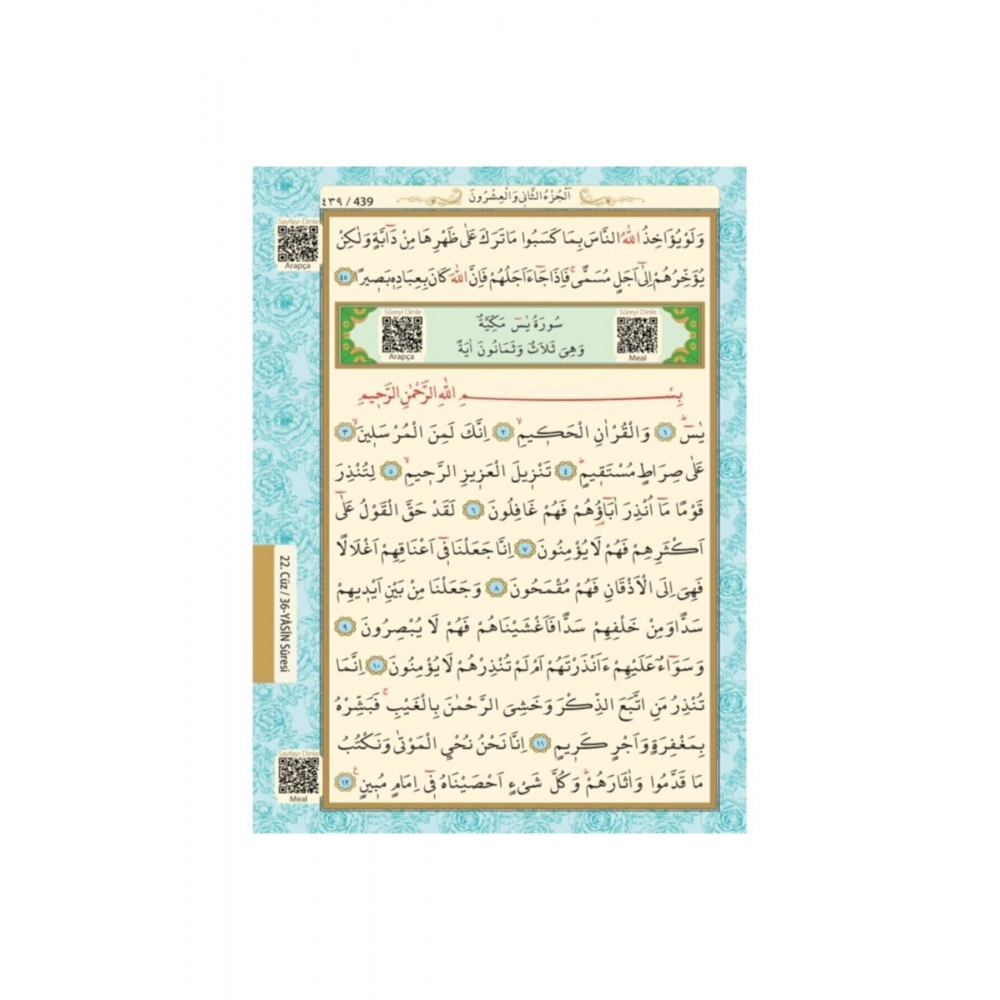 اَلْجُزْءُ الثَّانِى وَالْعِشْرُونَ
٤٣٩ / 439
Sayfayı Dinle
Arapça
وَلَوْ يُؤَاخِذُ اللّٰهُ النَّاسَ بِمَا كَسَبُوا مَا تَرَكَ عَلٰى ظَهْرِهَا مِنْ دَٓابَّةٍ وَلٰكِنْ
يُؤَخِّرُهُمْ اِلٰٓى اَجَلٍ مُسَمًّىۚ فَاِذَا جَٓاءَ اَجَلُهُمْ فَاِنَّ اللّٰهَ كَانَ بِعِبَادِه۪ بَص۪يرًا ﴿٤٥﴾
Sûreyi Dinle
Arapça
سُورَةُ يٰسٓ مَكِّيَّةٌ
وَهِىَ ثَلَاثٌ وَثَمَانُونَ اٰيَةً
Sûreyi Dinle
Meal
بِسْــــــــــــــــــــمِ اللّٰهِ الرَّحْمٰنِ الرَّح۪يمِ
يٰسٓۜ ﴿١﴾ وَالْقُرْاٰنِ الْحَك۪يمِۙ ﴿٢﴾ اِنَّكَ لَمِنَ الْمُرْسَل۪ينَۙ ﴿٣﴾
عَلٰى صِرَاطٍ مُسْتَق۪يمٍۜ ﴿٤﴾ تَنْز۪يلَ الْعَز۪يزِ الرَّح۪يمِۙ ﴿٥﴾ لِتُنْذِرَ
قَوْمًا مَٓا اُنْذِرَ اٰبَٓاؤُ۬هُمْ فَهُمْ غَافِلُونَ ﴿٦﴾ لَقَدْ حَقَّ الْقَوْلُ عَلٰٓى
اَكْثَرِهِمْ فَهُمْ لَا يُؤْمِنُونَ ﴿٧﴾ اِنَّا جَعَلْنَا ف۪ٓى اَعْنَاقِهِمْ اَغْلَالًا
فَهِىَ اِلَى الْاَذْقَانِ فَهُمْ مُقْمَحُونَ ﴿٨﴾ وَجَعَلْنَا مِنْ بَيْنِ اَيْد۪يهِمْ
سَدًّا وَمِنْ خَلْفِهِمْ سَدًّا فَاَغْشَيْنَاهُمْ فَهُمْ لَا يُبْصِرُونَ ﴿٩﴾
وَسَوَٓاءٌ عَلَيْهِمْ ءَاَنْذَرْتَهُمْ اَمْ لَمْ تُنْذِرْهُمْ لَا يُؤْمِنُونَ ﴿١٠﴾ اِنَّمَا
تُنْذِرُ مَنِ اتَّبَعَ الذِّكْرَ وَخَشِىَ الرَّحْمٰنَ بِالْغَيْبِۚ فَبَشِّرْهُ
بِمَغْفِرَةٍ وَاَجْرٍ كَر۪يمٍ ﴿١١﴾ اِنَّا نَحْنُ نُحْيِ الْمَوْتٰى وَنَكْتُبُ
مَا قَدَّمُوا وَاٰثَارَهُمْۜ وَكُلَّ شَىْءٍ اَحْصَيْنَاهُ ف۪ٓى اِمَامٍ مُب۪ينٍ۟ ﴿١٢﴾
22. Cüz / 36-YÂSÎN Sûresi
Sayfayı Dinle
Meal